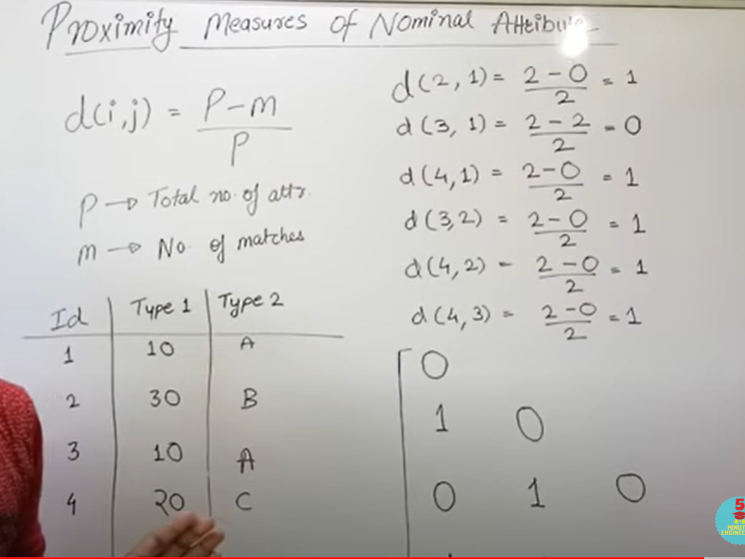 Proximity Measures of Nominal Attribute
d(i,j) = P-m / P
P → Total no. of attr.
m → No of matches
Id Type 1 Type 2
1 10 A
2 30 B
3 10 A
4 20 C
d(2,1) = 2-0 / 2 = 1
d(3,1) = 2-2 / 2 = 0
d(4,1) = 2-0 / 2 = 1
d(3,2) = 2-0 / 2 = 1
d(4,2) = 2-0 / 2 = 1
d(4,3) = 2-0 / 2 = 1
0
1 0
0 1 0
5